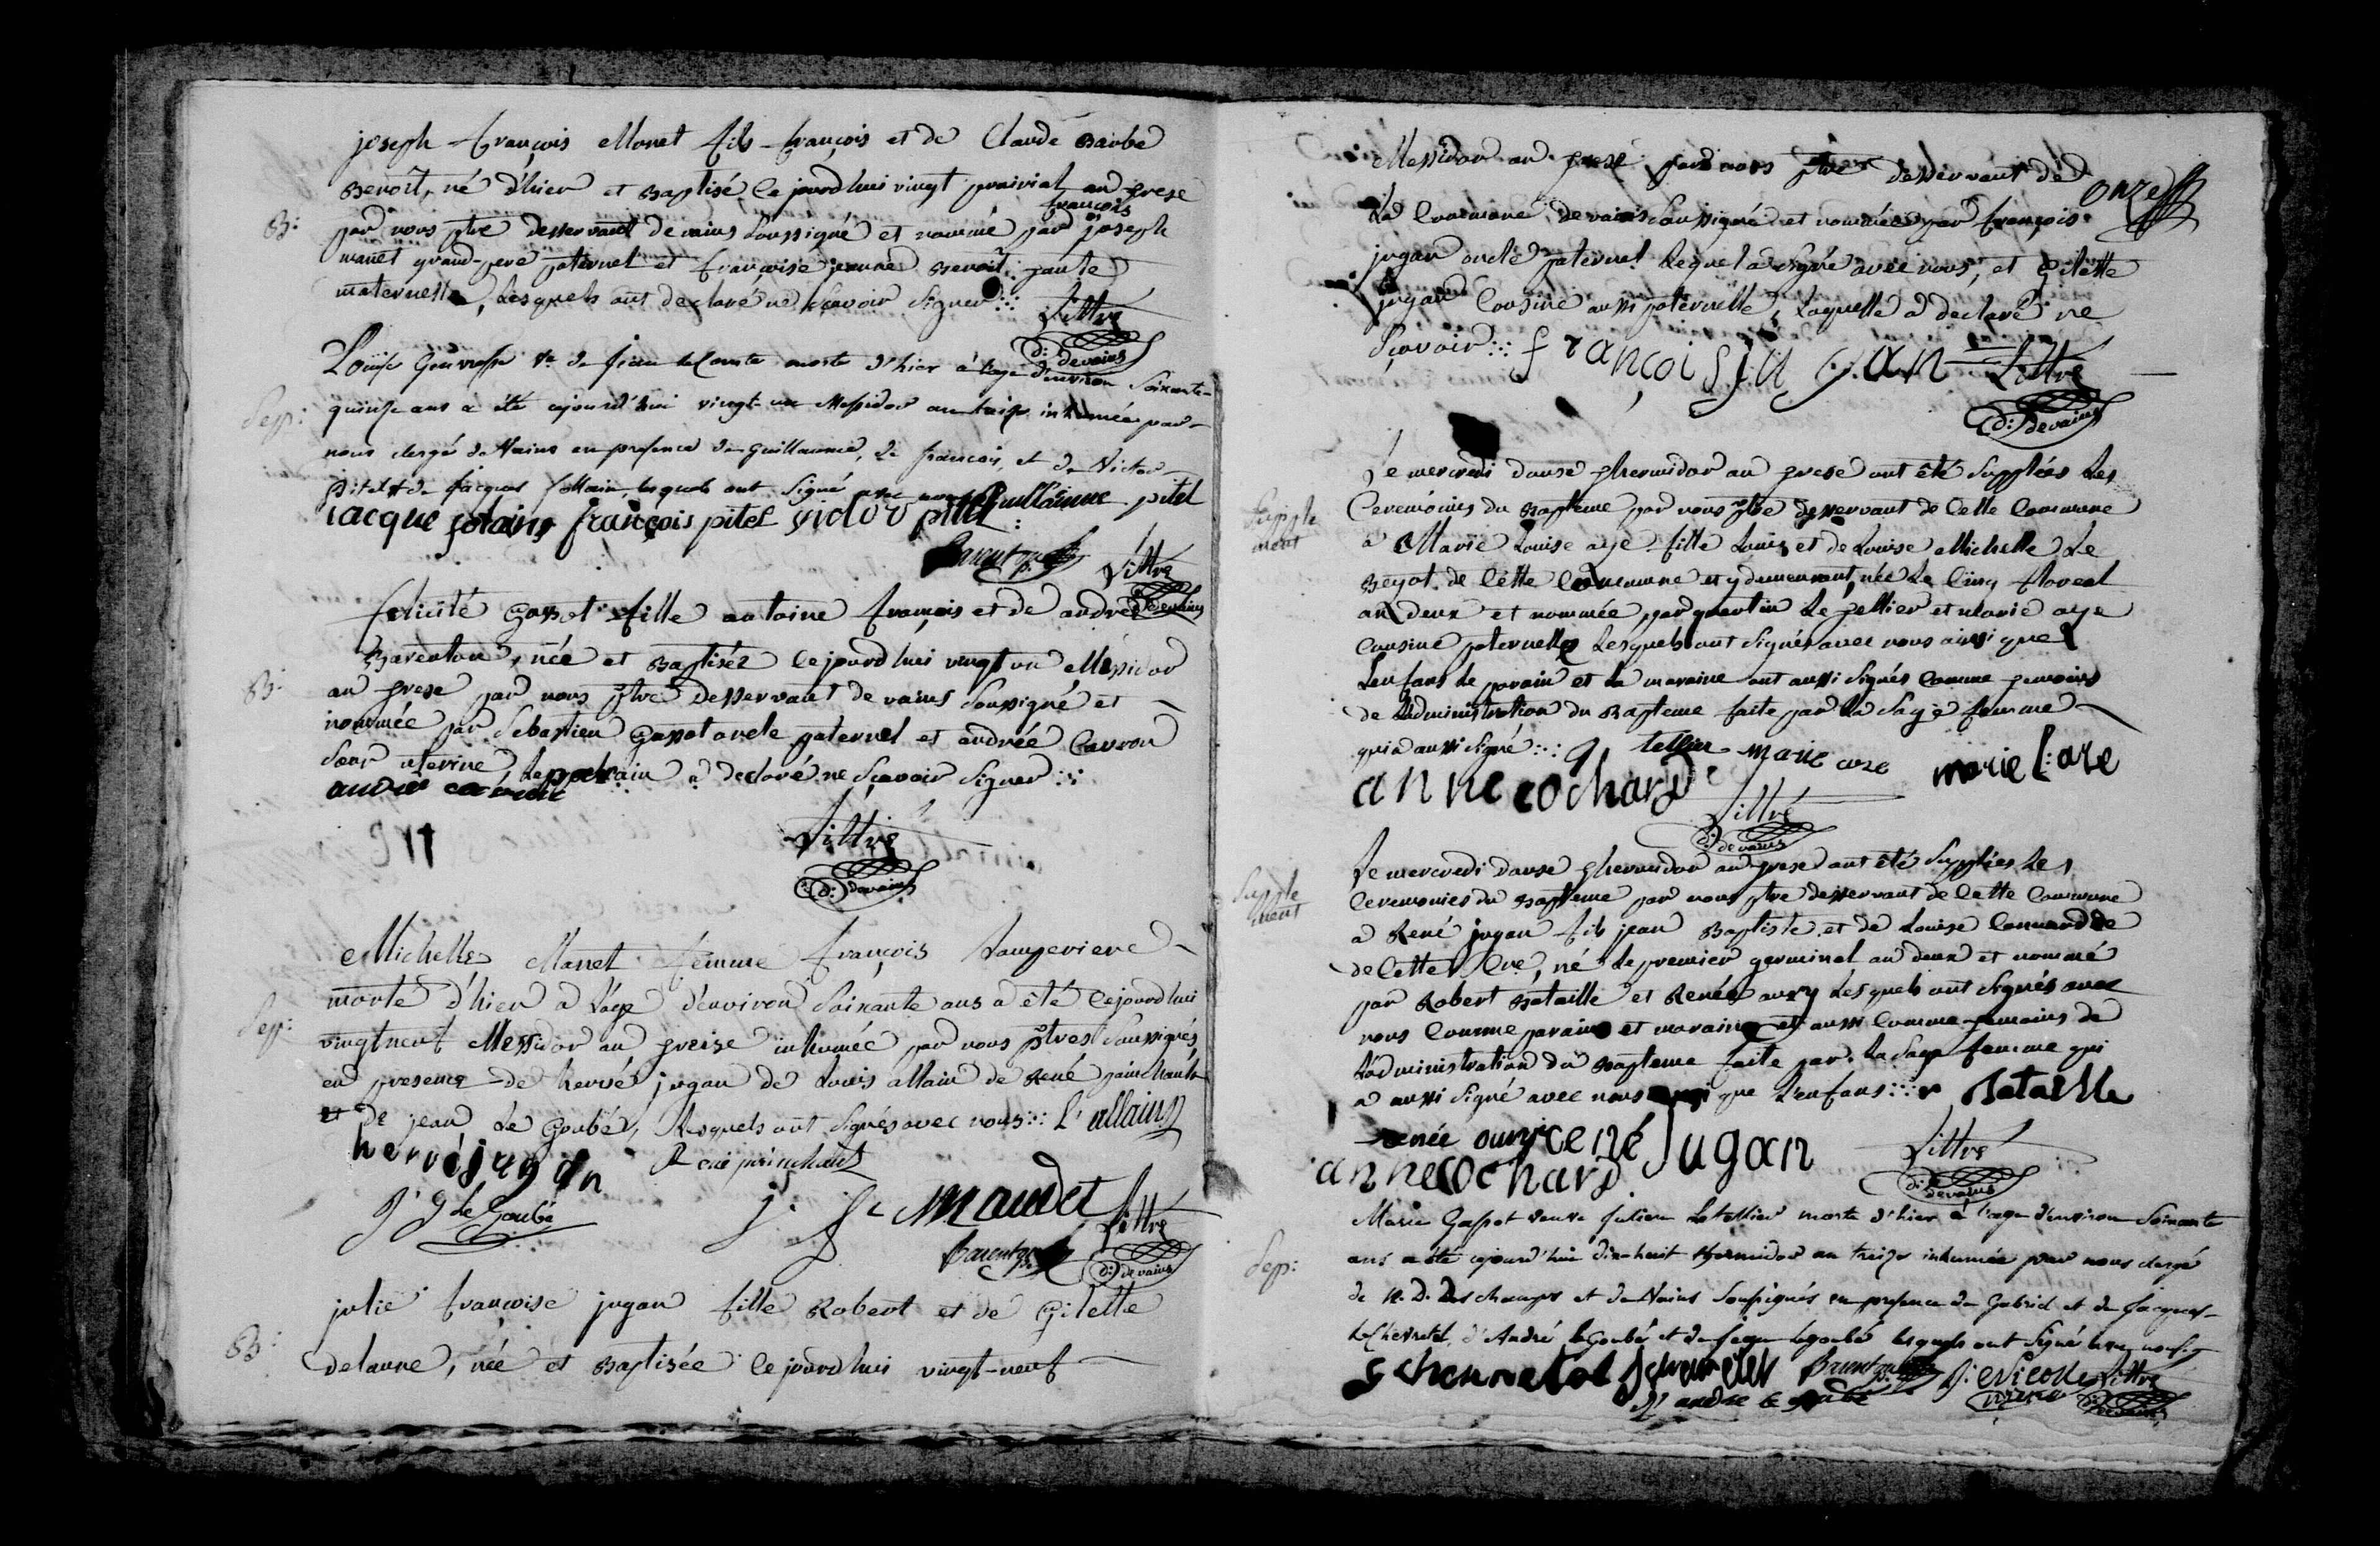 joseph François Manet fils François et de Claude Barbe
B: Benoît, né d'hier et Baptisé ce jourd'hui vingt prairial an trese
françois
par nous ptre desservant de vains soussigné et nommé par joseph
manet grand-pere paternel et françoise jeanne Benoît tante
maternelle, Lesquels ont declaré ne sçavoir signer
Littré
d: devains
Louise Gouvesse Ve de jean le Comte morte d'hier à l'age d'environ soixante-
Sep: quinse ans a été cejourd'hui vingt-un Messidor an treise inhumée par
nous clergé de Vains en presence de Guillaume, de françois, et de Victor
pitel et de jacques follain, lesquels ont signé avec nous Guillaume pitel
jacque folain françois pitel victor pitel
Barentp Littré
devains
felicité Gassot fille antoine françois et de andrée
Barenton, née et Baptisée cejourd'hui vingt un Messidor
B: an trese par nous ptre desservant de vains soussigné et
nommée par Sebastien Gassot oncle paternel et andrée Cauron
soeur uterine, Le parain a declaré ne sçavoir signer
andrée
Littré
d: devains
Michelle Manet femme françois Laugeviere
morte d'hier à l'age d'environ soixante ans a été cejourd'hui
Sep: vingtneuf Messidor an treise inhumée par nous ptres soussignés
en presence de hervé jugan de Louis allain de René painchault
et de jean Le Goubé, Lesquels ont signés avec nous L. allain
hervé jugan René painchault
J. G Le Goubé J. f. Maudet Littré
d: devains
julie françoise jugan fille Robert et de Gilette
B: delaune, née et Baptisée ce jourd'hui vingt-neuf
Messidor an trese par nous ptre desservant de
onze
La Commune de vains soussigné et nommée par françois
jugan oncle paternel Lequel a signé avec nous, et Gilette
jugan Cousine aussi paternelle, Laquelle a declaré ne
sçavoir françois jugan Littré
d: devains
Le mercredi douse thermidor an trese ont été suppléés Les
Supplement
Ceremonies du Bapteme par nous ptre desservant de Cette Commune
à Marie Louise aze fille Louis et de Louise Michelle Le
Beyot de Cette Commune et y demeurant, née Le Cinq floreal
an deux et nommée par quentin Le tellier et marie aze
Cousine paternelle Lesquels ont signés avec nous ainsi que
L'enfans Le parain et La maraine ont aussi signés Comme temoins
de L'administration du Bapteme faite par La sage femme
qui a aussi signé q tellier marie aze marie L: aze
anne cochard
Littré
d: devains
Le mercredi douse thermidor an trese ont été suppléés Les
Supplement
Ceremonies du Bapteme par nous ptre desservant de Cette Commune
à René jugan fils jean Baptiste et de Louise
de Cette Cne, né Le premier germinal an deux et nommé
par Robert Bataille et Renée aury Lesquels ont signés avec
nous Comme parain et maraine et aussi Comme temoins de
L'administration du Bapteme faite par La sage femme qui
a aussi signé avec nous ainsi que L'enfans r Bataille
renée aury rené Jugan Littré
anne cochard d: devains
Marie Gassot veuve julien Letellier morte d'hier à l'age d'environ soixante
Sep: ans a été cejourd'hui dix-huit thermidor an treize inhumée par nous clergé
de N. D. Des champs et de Vains soussignés en presence de Gabriel et de jacques
Le chevretel d'André le Goubé et de jean legoubé lesquels ont signé
g chevretel J. Nicolle Littré
andre le goubé